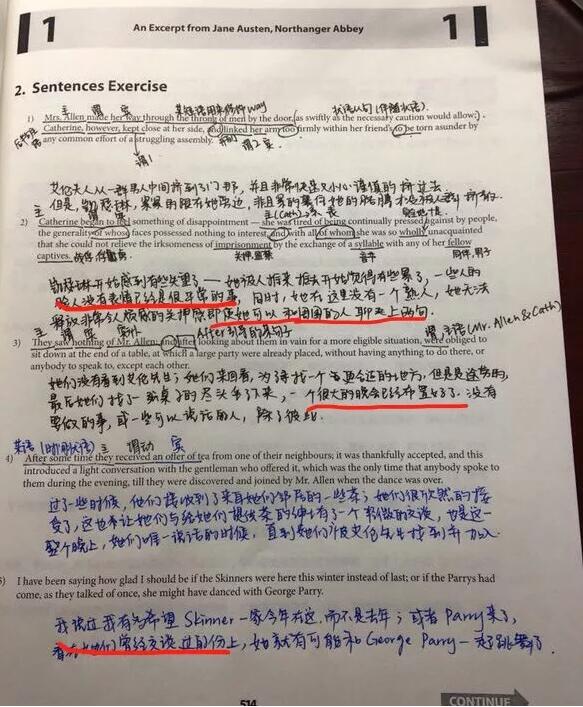 1 An Excerpt from Jane Austen, Northanger Abbey 1
2. Sentences Exercise
主 谓 宾 某短语用来修饰way 状语从句(伴随状语).
1) Mrs. Allen made her way through the throng of men by the door, as swiftly as the necessary caution would allow;
Catherine, however, kept close at her side, and linked her arm too firmly within her friend's to be torn asunder by
any common effort of a struggling assembly.
谓1 谓2 宾
艾伦夫人从一群男人中间挤到了门那, 并且非常快速又小心谨慎的挤过去.
主 谓 宾
主(Cath)
2) Catherine began to feel something of disappointment — she was tired of being continually pressed against by people,
the generality of whose faces possessed nothing to interest, and with all of whom she was so wholly unacquainted
that she could not relieve the irksomeness of imprisonment by the exchange of a syllable with any of her fellow
captives. 关押,监禁 音节
凯瑟琳开始感到有些失望了——她被人挤来挤去开始觉得有些累了, 一些人的
同时, 她在这里没有一个熟人, 她无法
释放非常令人烦恼的关押感即使她可以和周围的人聊上两句.
主 谓 宾 After引导的条句子 谓 主语(Mr. Allen & Cath)
3) They saw nothing of Mr. Allen, and after looking about them in vain for a more eligible situation, were obliged to
sit down at the end of a table, at which a large party were already placed, without having anything to do there, or
anybody to speak to, except each other.
她们没有看到艾伦先生; 她们来回看, 为寻找一个合适的地方, 但是是徒劳的,
最后她们找了一张桌子的尽头坐了下来, 一个很大的晚会已经布置好了. 没有
要做的事, 或一些可以说话的人, 除了彼此.
状语(时间状语) 主 谓动 宾
4) After some time they received an offer of tea from one of their neighbours; it was thankfully accepted, and this
introduced a light conversation with the gentleman who offered it, which was the only time that anybody spoke to
them during the evening, till they were discovered and joined by Mr. Allen when the dance was over.
过了一些时候, 他们接收到了来自她们邻居的一些茶; 她们很欣然的接
受了, 这也让她们与给她们提供茶的绅士有了一个轻微的交谈, 也是这一
整个晚上, 她们唯一说话的时候, 直到她们被艾伦先生找到并加入.
5) I have been saying how glad I should be if the Skinners were here this winter instead of last; or if the Parrys had
come, as they talked of once, she might have danced with George Parry.
我说过我有多希望Skinner一家今年在这, 而不是去年; 或者Parry来了,
看在她们曾经交谈过的份上, 她就有可能和George Parry一起跳舞了.
514
CONTINUE